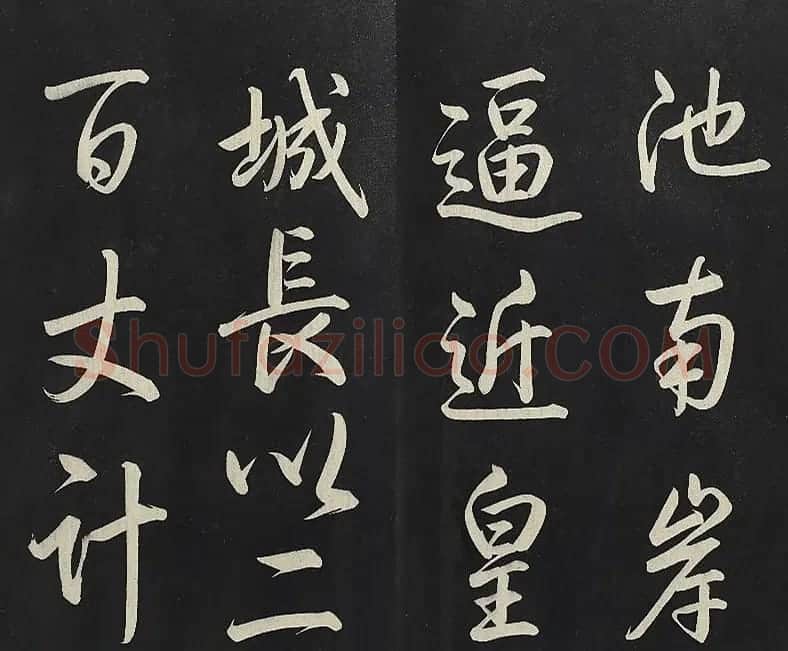 池南岸
逼近皇
城長以二
百丈计
Shufaziliao.COM